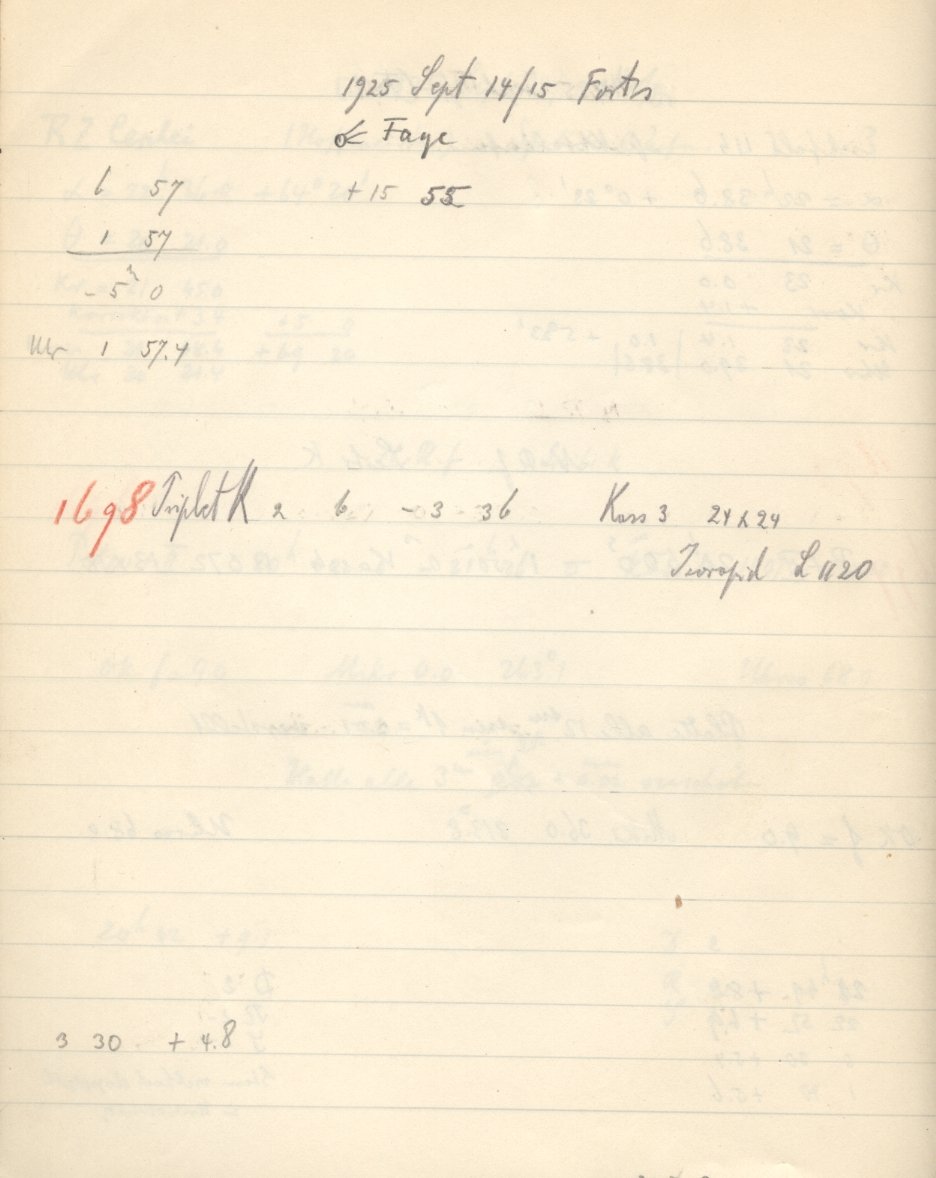 1925 Sept 14/15 Forts
☄ Faye
6 57 +15 55
1 57
-5ʰ 0
Uhr 1 57.4
1698 Triplet K 2 6 -3 36 Kass 3 24x24
Isorapid L 1120
3 30 + 4.8